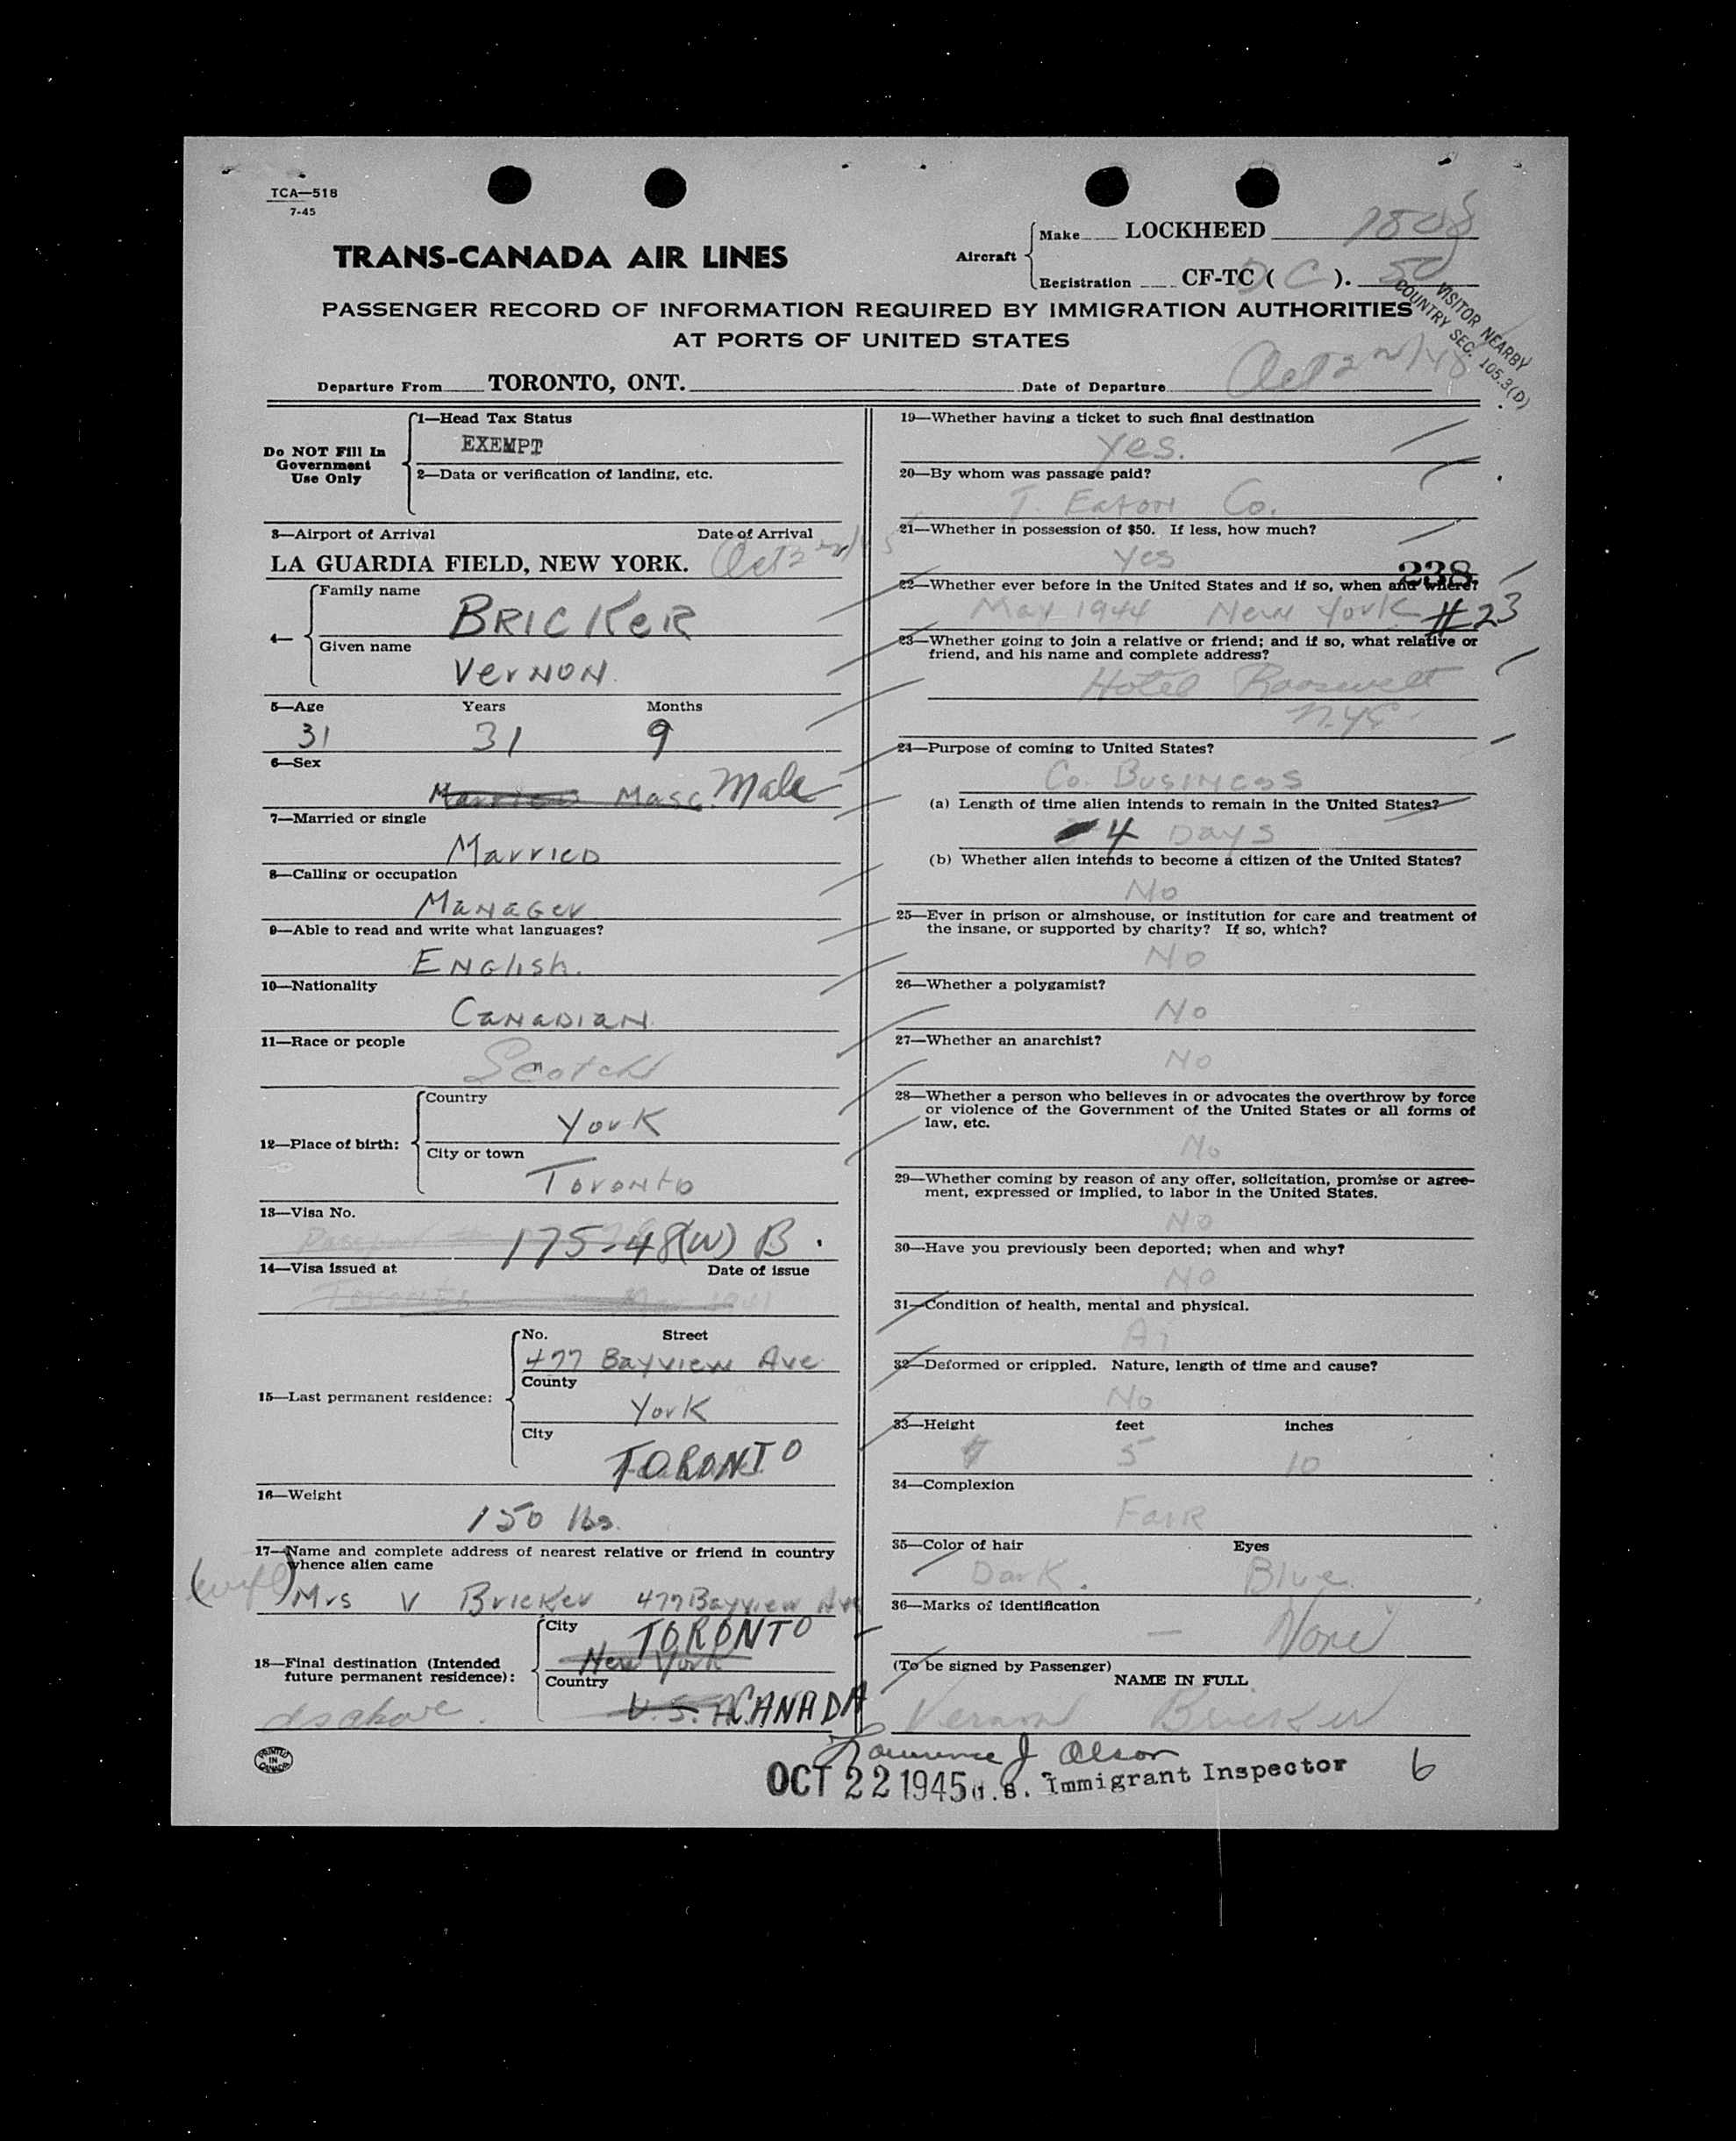 TCA—518
7-45
TRANS-CANADA AIR LINES
Aircraft
Make LOCKHEED
Registration CF-TC ( ).
VISITOR NEARBY
COUNTRY SEC. 105.3(D)
PASSENGER RECORD OF INFORMATION REQUIRED BY IMMIGRATION AUTHORITIES
AT PORTS OF UNITED STATES
Departure From TORONTO, ONT. Date of Departure Oct
Do NOT Fill In
Government
Use Only
1—Head Tax Status
EXEMPT
2—Data or verification of landing, etc.
3—Airport of Arrival Date of Arrival
LA GUARDIA FIELD, NEW YORK. Oct
4—
Family name
BRICKER
Given name
VERNON
5—Age Years Months
31 31 9
6—Sex
Masc. Male
7—Married or single
Married
8—Calling or occupation
Manager
9—Able to read and write what languages?
English.
10—Nationality
Canadian
11—Race or people
Scotch
12—Place of birth:
Country
York
City or town
Toronto
13—Visa No.
175-48(W) B.
14—Visa issued at Date of issue
Toronto
15—Last permanent residence:
No. Street
477 Bayview Ave
County
York
City
TORONTO
16—Weight
150 lbs.
17—Name and complete address of nearest relative or friend in country
whence alien came
(wife) Mrs V Bricker 477 Bayview Ave
18—Final destination (Intended
future permanent residence):
as above.
City
TORONTO
New York
Country
U.S.A. CANADA
19—Whether having a ticket to such final destination
Yes.
20—By whom was passage paid?
T. Eaton Co.
21—Whether in possession of $50. If less, how much?
Yes
238
22—Whether ever before in the United States and if so, when and where?
May 1944 New York #23
23—Whether going to join a relative or friend; and if so, what relative or
friend, and his name and complete address?
Hotel Roosevelt
N.Y.C.
24—Purpose of coming to United States?
Co. Business
(a) Length of time alien intends to remain in the United States?
4 Days
(b) Whether alien intends to become a citizen of the United States?
No
25—Ever in prison or almshouse, or institution for care and treatment of
the insane, or supported by charity? If so, which?
No
26—Whether a polygamist?
No
27—Whether an anarchist?
No
28—Whether a person who believes in or advocates the overthrow by force
or violence of the Government of the United States or all forms of
law, etc.
No
29—Whether coming by reason of any offer, solicitation, promise or agree-
ment, expressed or implied, to labor in the United States.
No
30—Have you previously been deported; when and why?
No
31—Condition of health, mental and physical.
A1
32—Deformed or crippled. Nature, length of time and cause?
No
33—Height feet inches
5 10
34—Complexion
Fair
35—Color of hair Eyes
Dark. Blue.
36—Marks of identification
— None
(To be signed by Passenger)
NAME IN FULL
Vernon Bricker
Laurence J Olson
OCT 22 1945 U.S. Immigrant Inspector 6
PRINTED
IN
CANADA